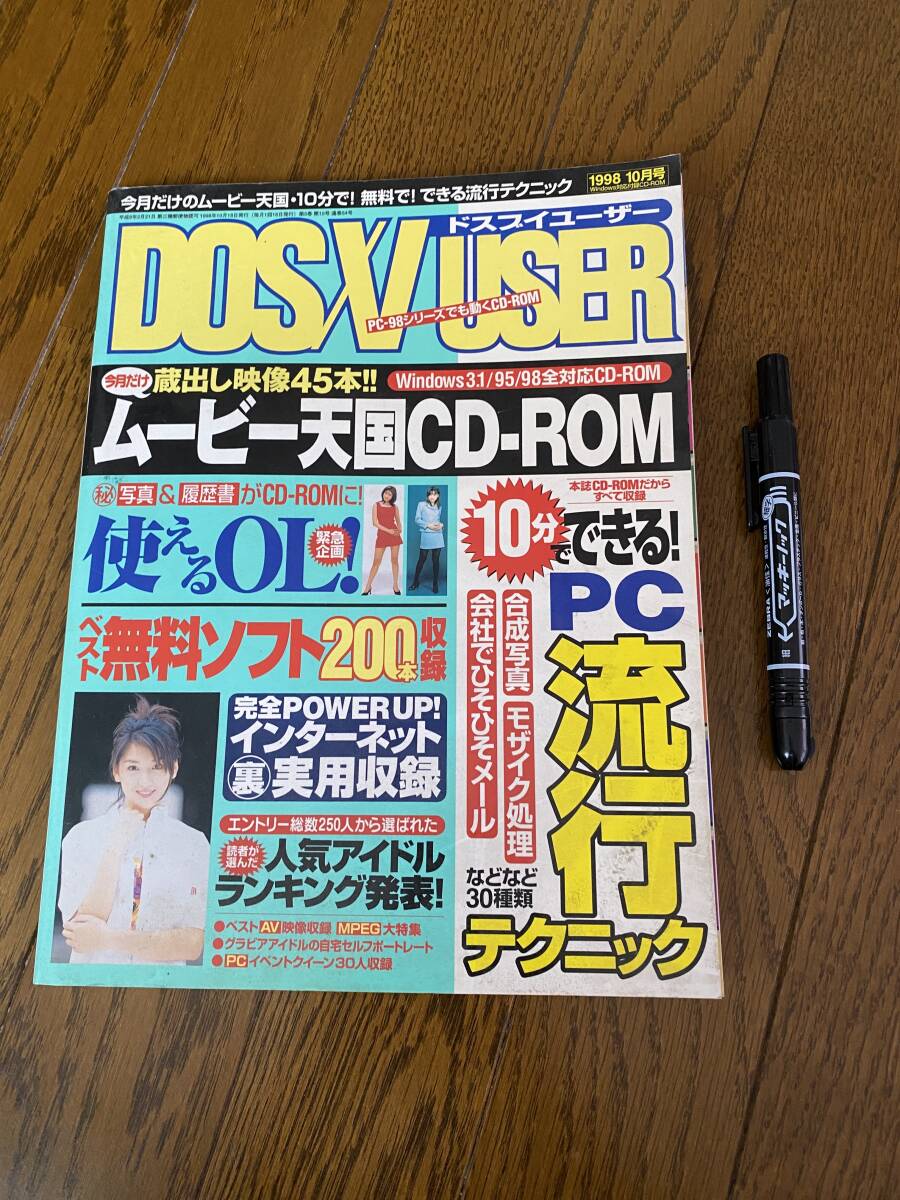 今月だけのムービー天国・10分で! 無料で! できる流行テクニック
1998 10月号
Windows対応付録CD-ROM
ドスブイユーザー
DOS/V USER
PC-98シリーズでも動くCD-ROM
今月だけ 蔵出し映像45本!!
Windows3.1/95/98全対応CD-ROM
ムービー天国CD-ROM
㊙写真&履歴書がCD-ROMに!
使えるOL!
緊急企画
本誌CD-ROMだから
すべて収録
10分でできる!
PC
流行
テクニック
合成写真 モザイク処理
会社でひそひそメール
などなど
30種類
ベスト無料ソフト200本収録
完全POWER UP!
インターネット
裏 実用収録
エントリー総数250人から選ばれた
読者が選んだ 人気アイドル
ランキング発表!
●ベストAV映像収録 MPEG大特集
●グラビアアイドルの自宅セルフポートレート
●PCイベントクイーン30人収録
ZEBRA
マッキーノック